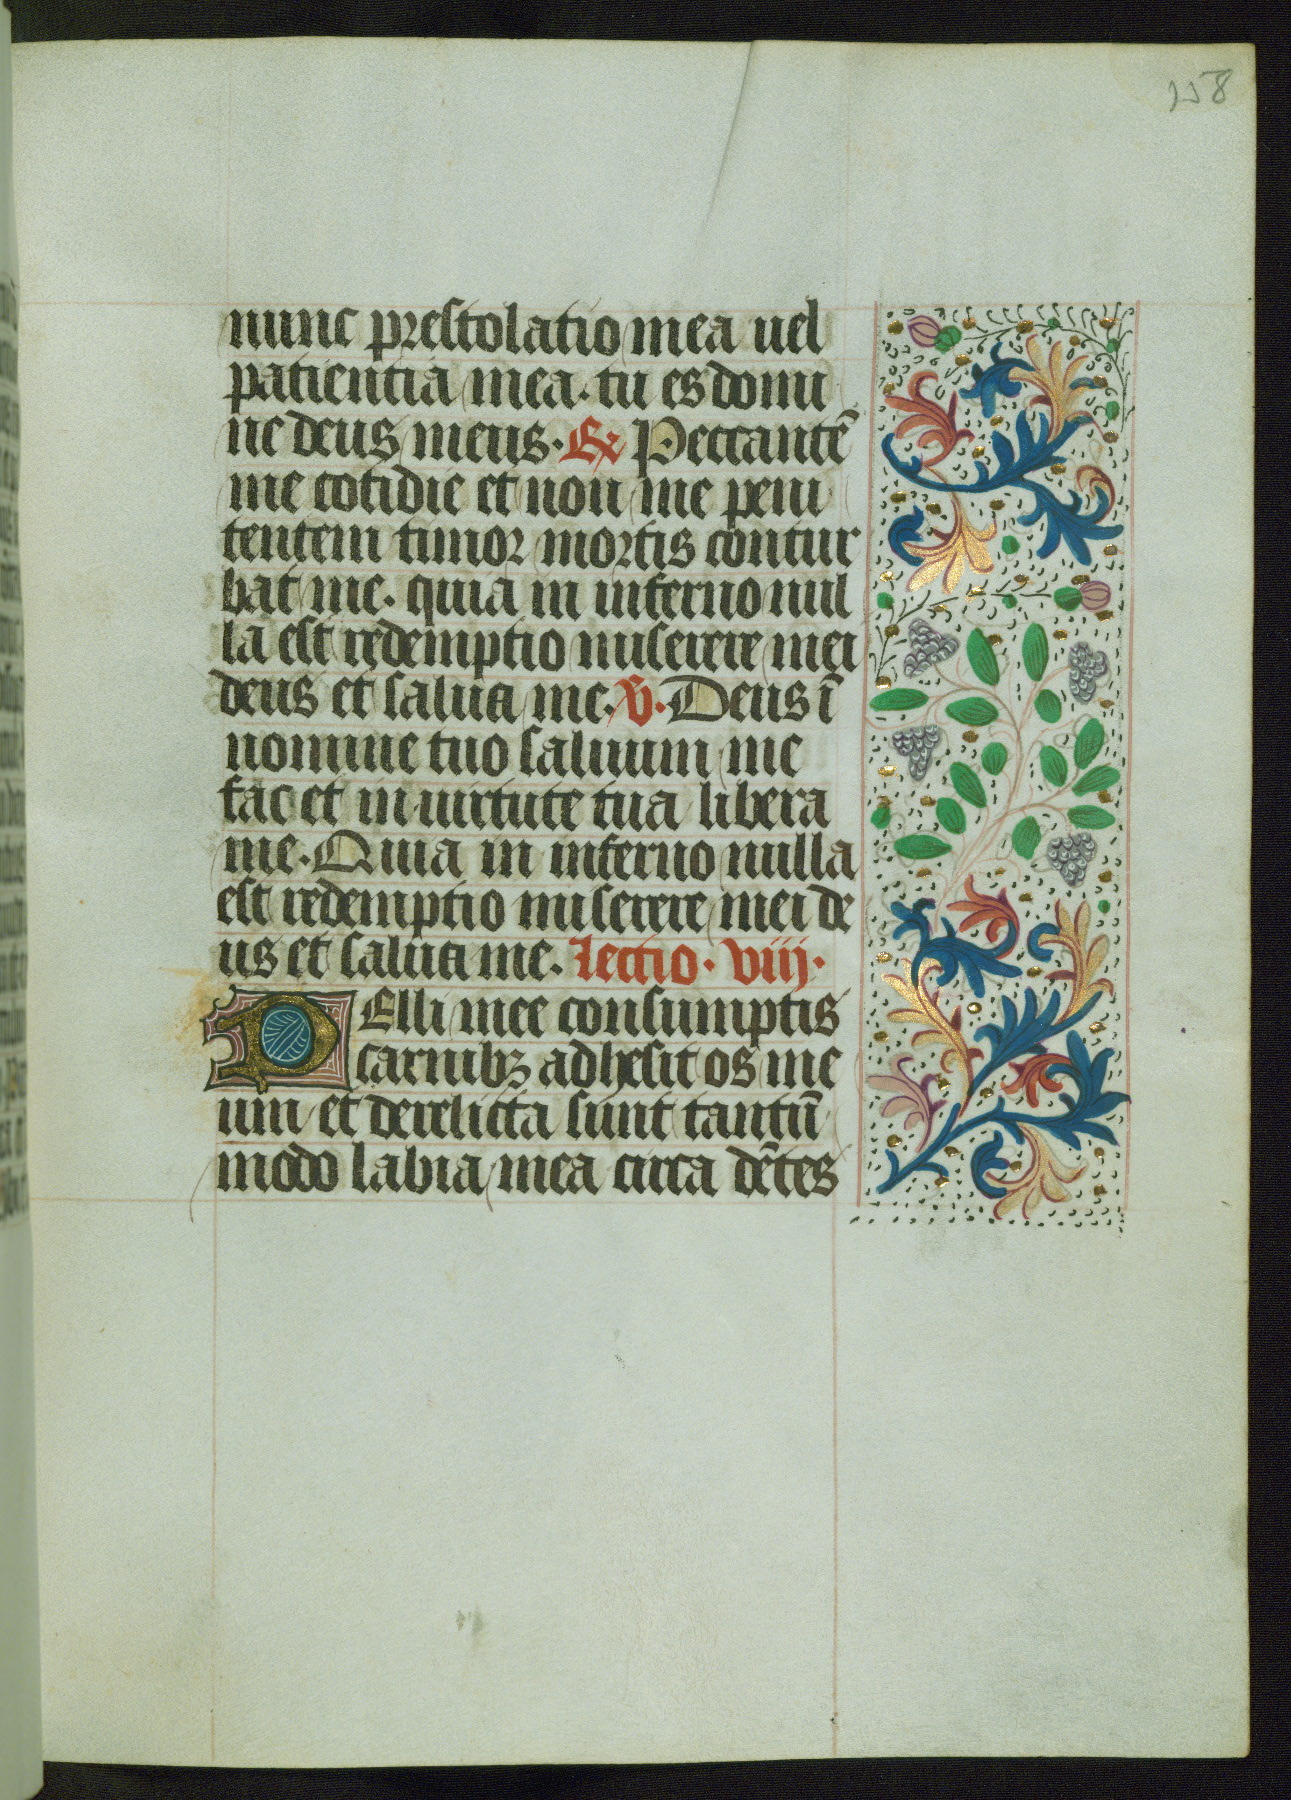 158
nunc prestolatio mea uel
patientia mea. tu es domi
ne deus meus. R Peccantē
me cotidie et non me peni
tentem timor mortis contur
bat me. quia in inferno nul
la est redemptio miserere mei
deus et salua me. V. Deus ī
nomine tuo saluum me
fac et in uirtute tua libera
me. Quia in inferno nulla
est redemptio miserere mei de
us et salua me. lectio. viij.
PElli mee consumptis
carnibꝫ adhesit os me
um et derelicta sunt tantū
modo labia mea circa dētes